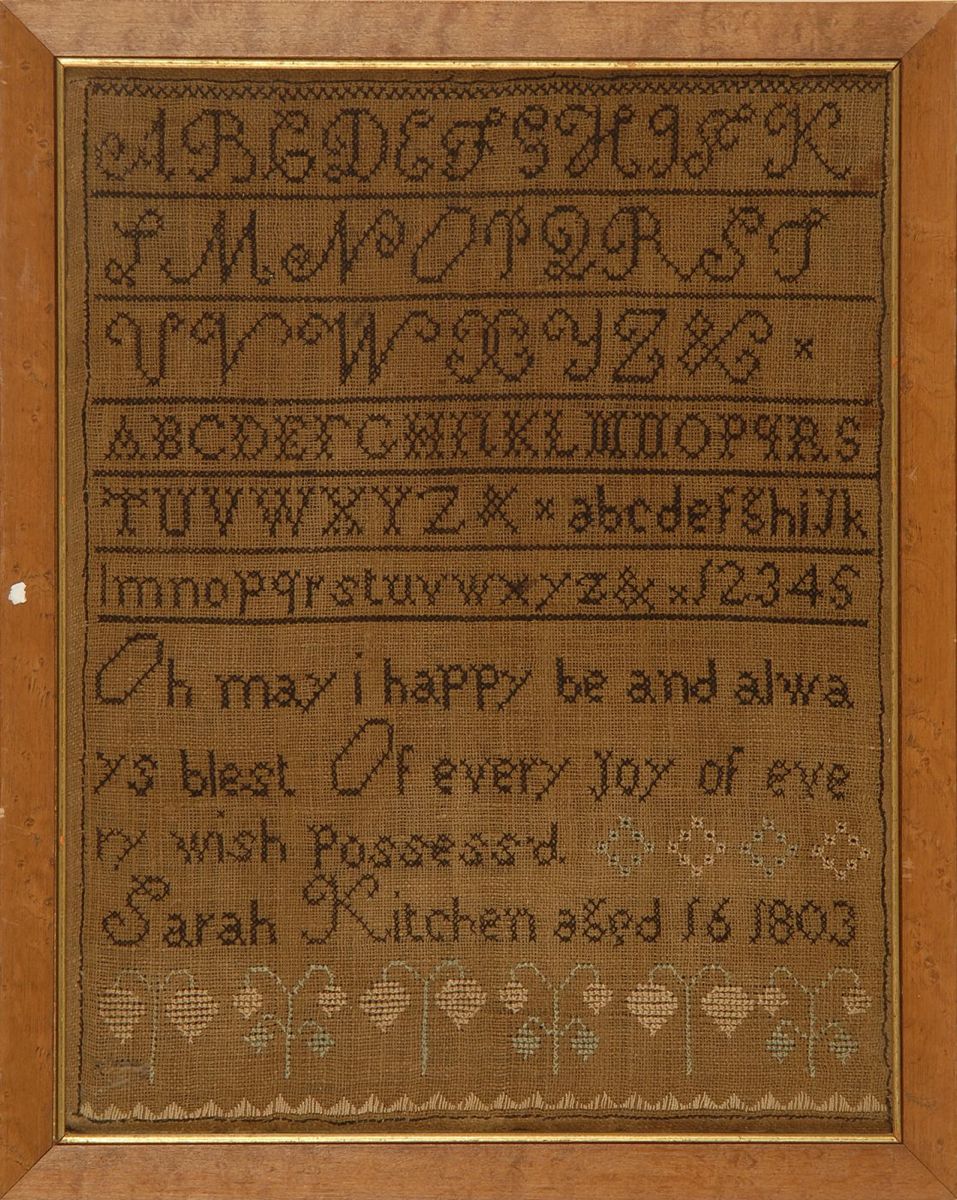 A B C D E F G H I J K
L M N O P Q R S T
U V W X Y Z &
A B C D E F G H I J K L M N O P q R S
T U V W X Y Z & a b c d e f g h i j k
l m n o p q r s t u v w x y z & 1 2 3 4 5
Oh may i happy be and alwa
ys blest Of every Joy of eve
ry wish Possess'd.
Sarah Kitchen aged 16 1803